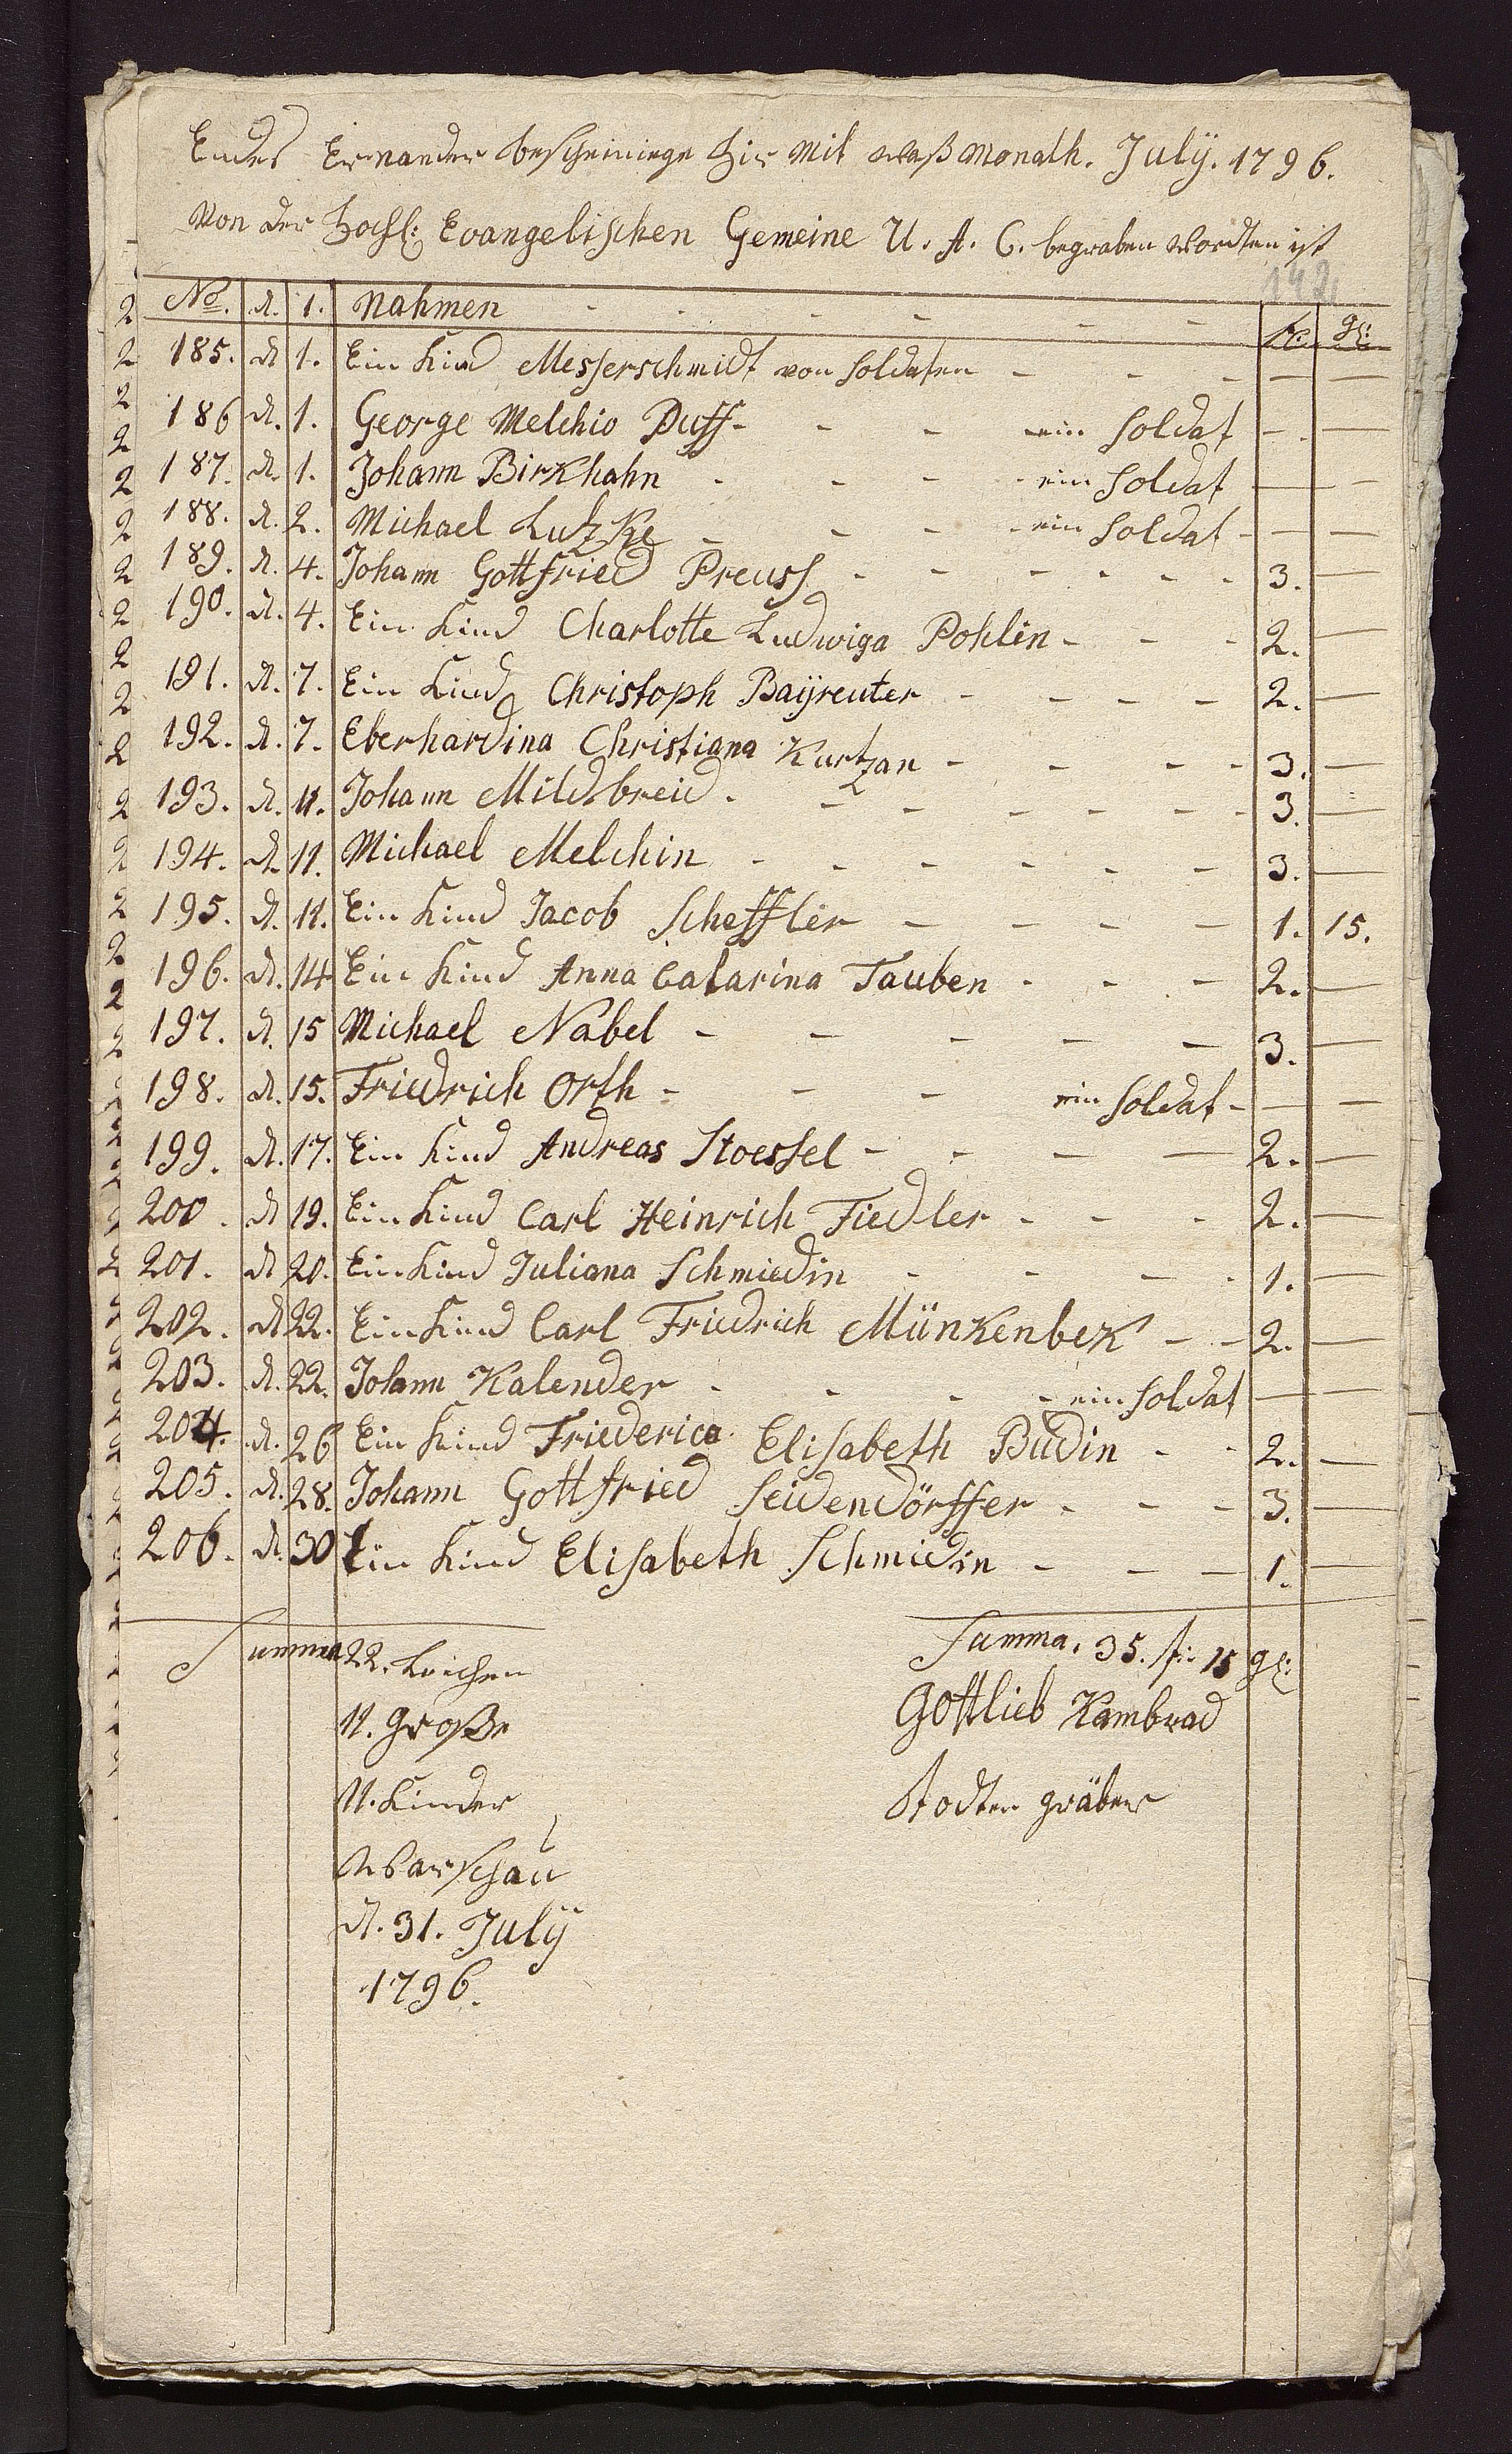 Endes Ernander bescheinige hir mit waß Monath. Julÿ. 1796.
Von der hochl: Evangelischen Gemeine U. A. C. begraben wordten ist
142
No. d. 1. Nahmen fl: gl:
185. d 1. Ein Kind Messerschmidt von Soldaten - - - — —
186 d. 1. George Melchio Duff - - - ein Soldat — —
187. d. 1. Johann Birkhahn - - - - ein Soldat — —
188. d. 2. Michael Lutzke - - - - ein Soldat — —
189. d. 4. Johann Gottfried Preuss - - - - - - 3. —
190. d. 4. Ein Kind Charlotte Ludwiga Pohlin - - - 2. —
191. d. 7. Ein Kind Christoph Baÿreuter - - - - 2. —
192. d. 7. Eberhardina Christiana Kurtzan - - - - 3. —
193. d. 11. Johann Mildbreid - - - - - - 3. —
194. d. 11. Michael Melchin - - - - - - 3. —
195. d. 11. Ein Kind Jacob Scheffler - - - - 1. 15.
196. d. 14 Ein Kind Anna Catarina Tauben - - - 2. —
197. d. 15 Michael Nabel - - - - - 3. —
198. d. 15. Friedrich Orth - - - ein Soldat - — —
199. d. 17. Ein Kind Andreas Stoessel - - - - 2. —
200. d 19. Ein Kind Carl Heinrich Fiedler - - - 2. —
201. d 20. Ein Kind Juliana Schmiedin - - - - 1. —
202. d 22. Ein Kind Carl Friedrich Münkenbek - - 2. —
203. d. 22. Johann Kalender - - - - ein Soldat — —
204. d. 26 Ein Kind Friederica Elisabeth Budin - - 2. —
205. d. 28. Johann Gottfried Seidendörffer - - - 3. —
206. d. 30 Ein Kind Elisabeth Schmidin - - - 1. —
Summa 22. Leichen Summa. 35. f: 15 gl:
11. Große Gottlieb Kambrad
11. Kinder Todten gräber
Warschau
d. 31. Julÿ
1796.